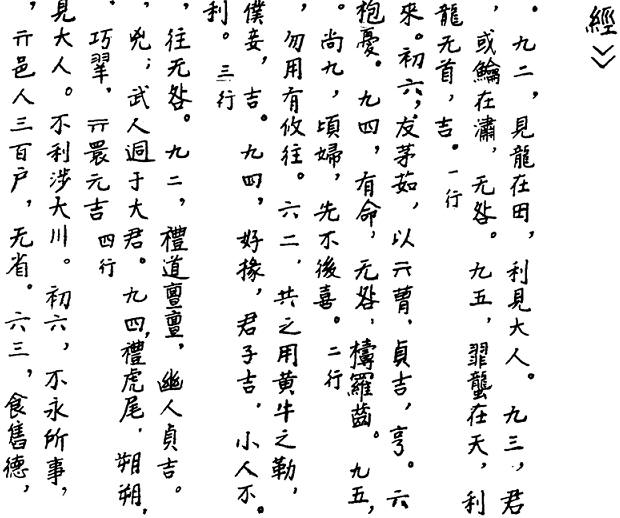 經
。九二，見龍在田，利見大人。九三，君
，或在瀟，无咎。九五，翡蠪在天，利
龍无首，吉。一行
來。初六，犮茅茹，以亓曹，貞吉，亨。六
枹憂。九四，有命，无咎，檮羅齒。九五，
。尚九，頃婦，先不後喜。二行
，勿用有攸往。六二，共之用黄牛之勒，
僕妾，吉。九四，好掾，君子吉，小人不。
利。三行
，往无咎。九二，禮道亶亶，幽人貞吉。
，兇；武人迵于大君。九四，禮虎尾，朔朔，
，巧翠，亓睘元吉 四行
見大人。不利涉大川。初六，不永所事，
，亓邑人三百户，无省。六三，食舊德，